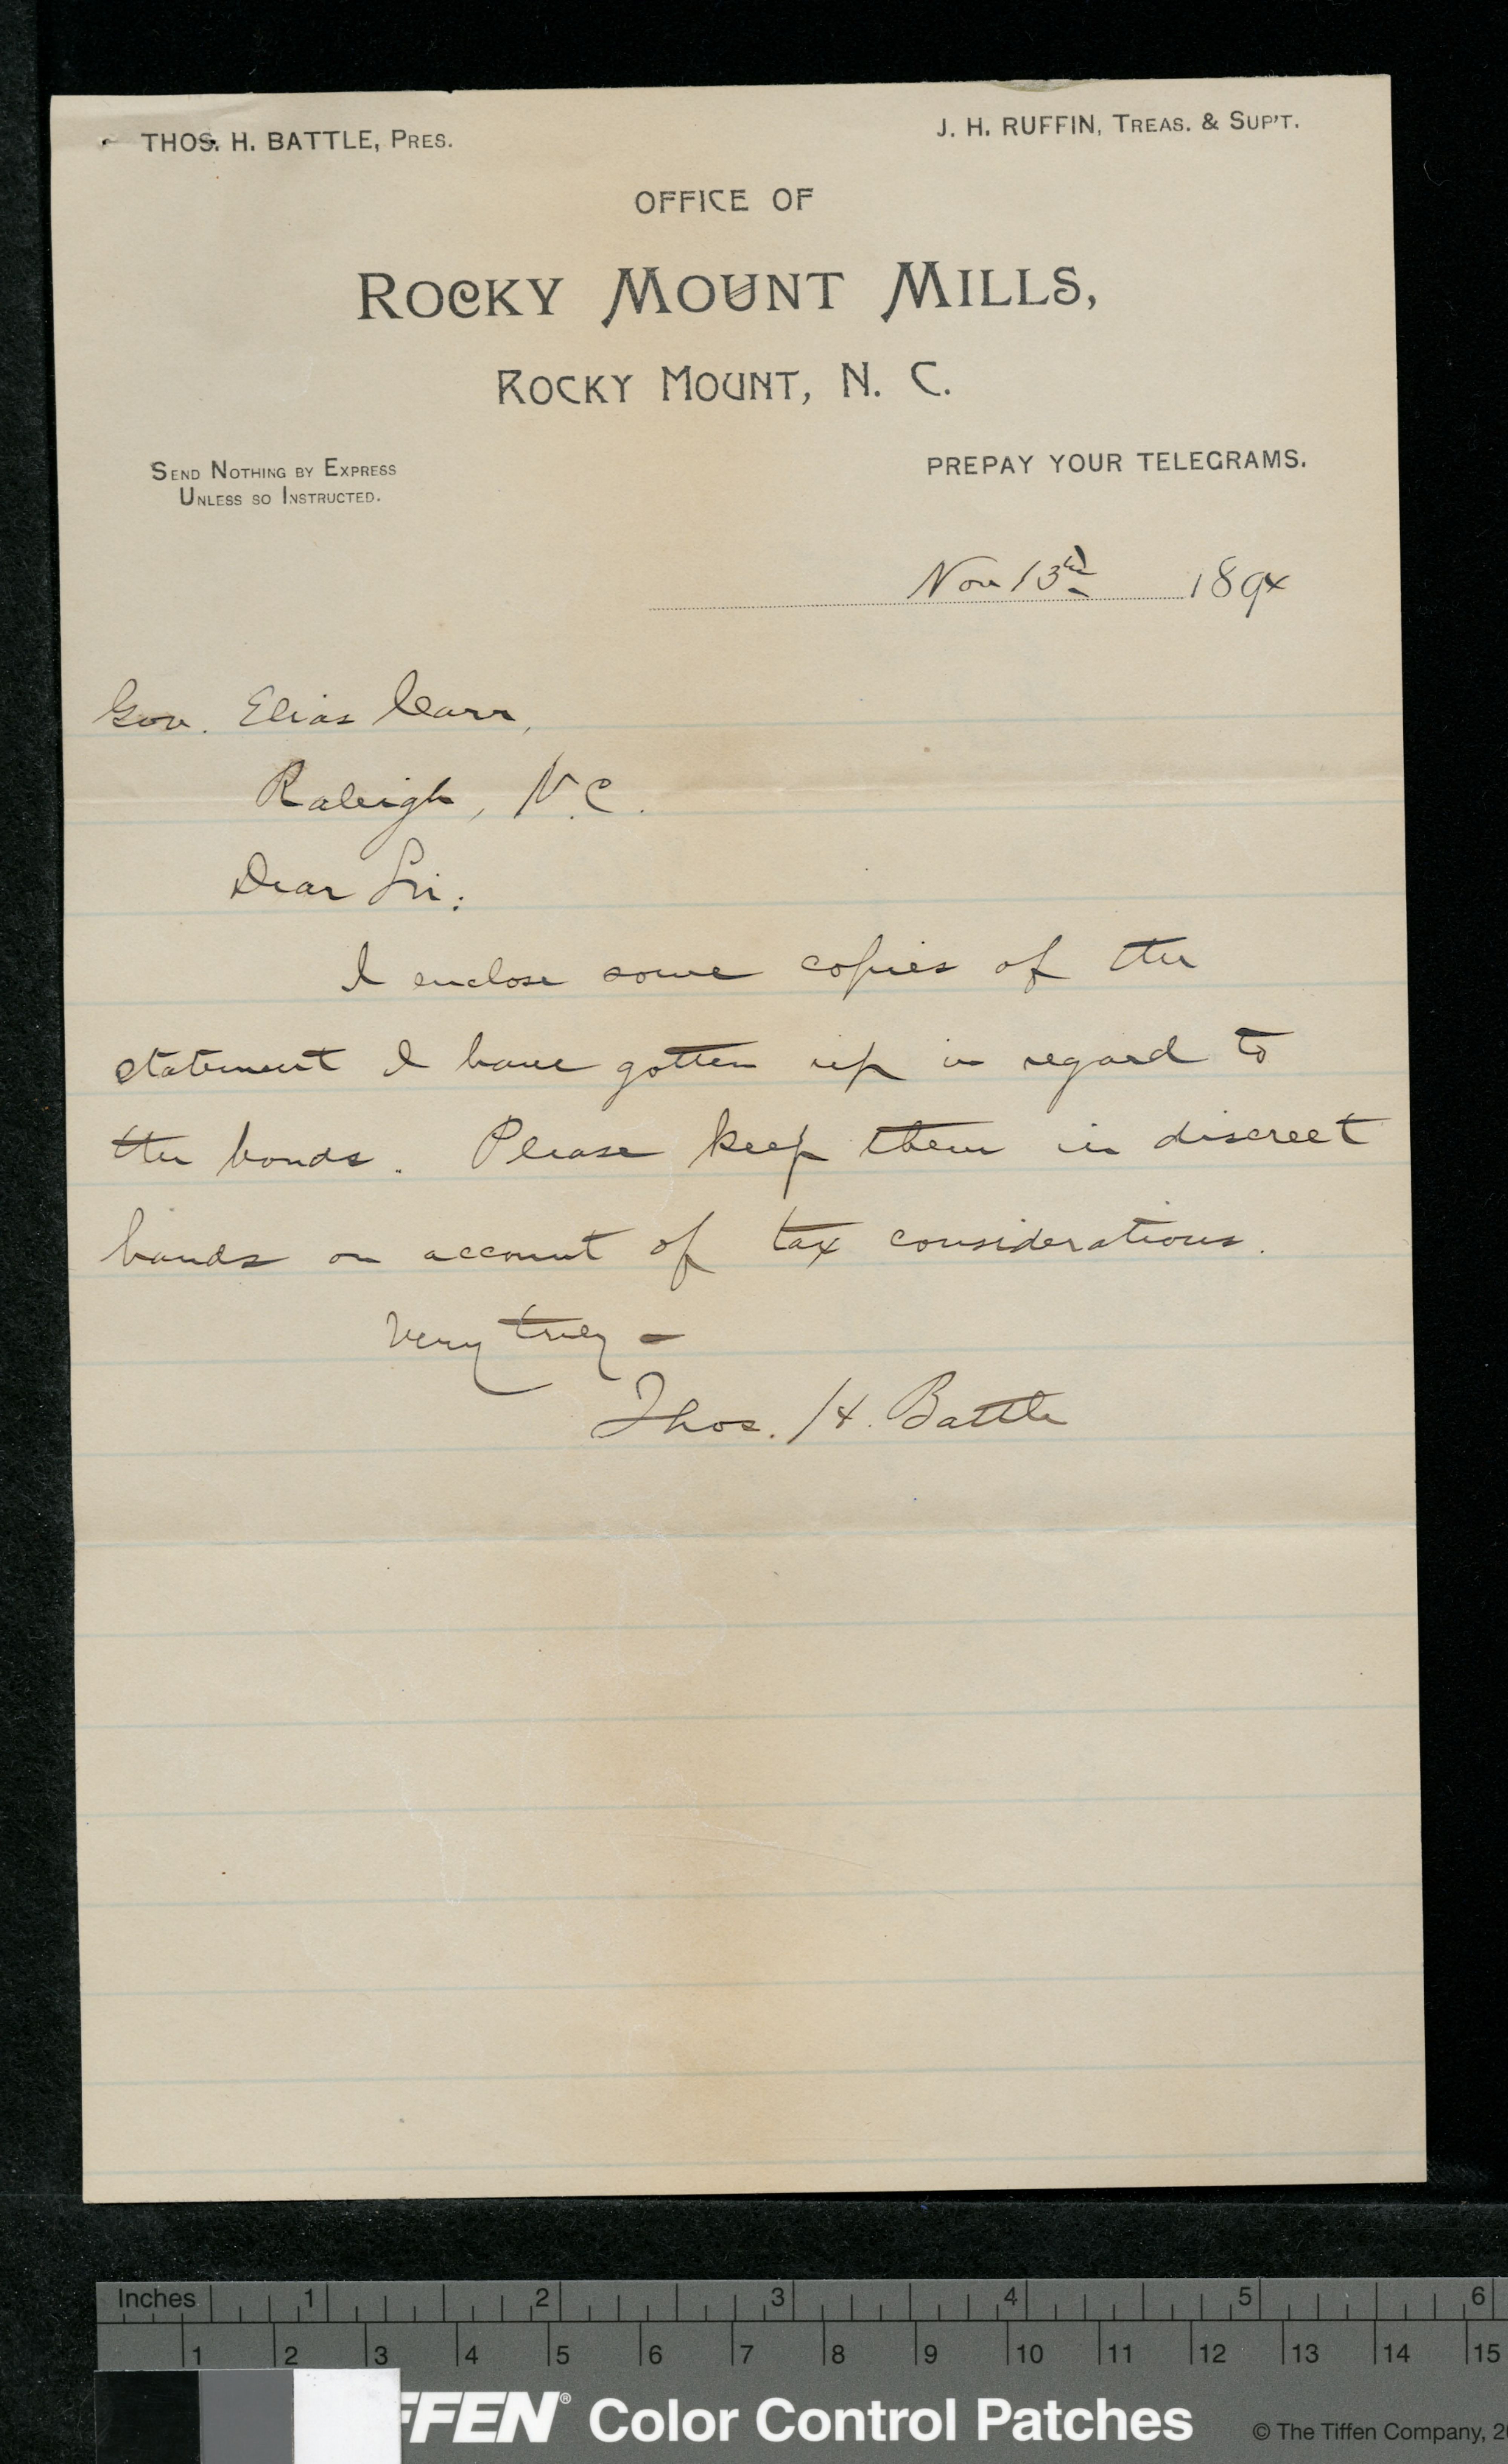 THOS. H. BATTLE, PRES.
J. H. RUFFIN, TREAS. & SUP'T.
OFFICE OF
ROCKY MOUNT MILLS,
ROCKY MOUNT, N. C.
SEND NOTHING BY EXPRESS
UNLESS SO INSTRUCTED.
PREPAY YOUR TELEGRAMS.
Nov 13th 1894
Gov. Elias Carr,
Raleigh, N.C.
Dear Sir:
I enclose some copies of the
statement I have gotten up in regard to
the bonds. Please keep them in discreet
hands on account of tax considerations.
Very truly -
Thos. H. Battle
Inches 1 2 3 4 5 6
1 2 3 4 5 6 7 8 9 10 11 12 13 14 15
FFEN® Color Control Patches
© The Tiffen Company, 2